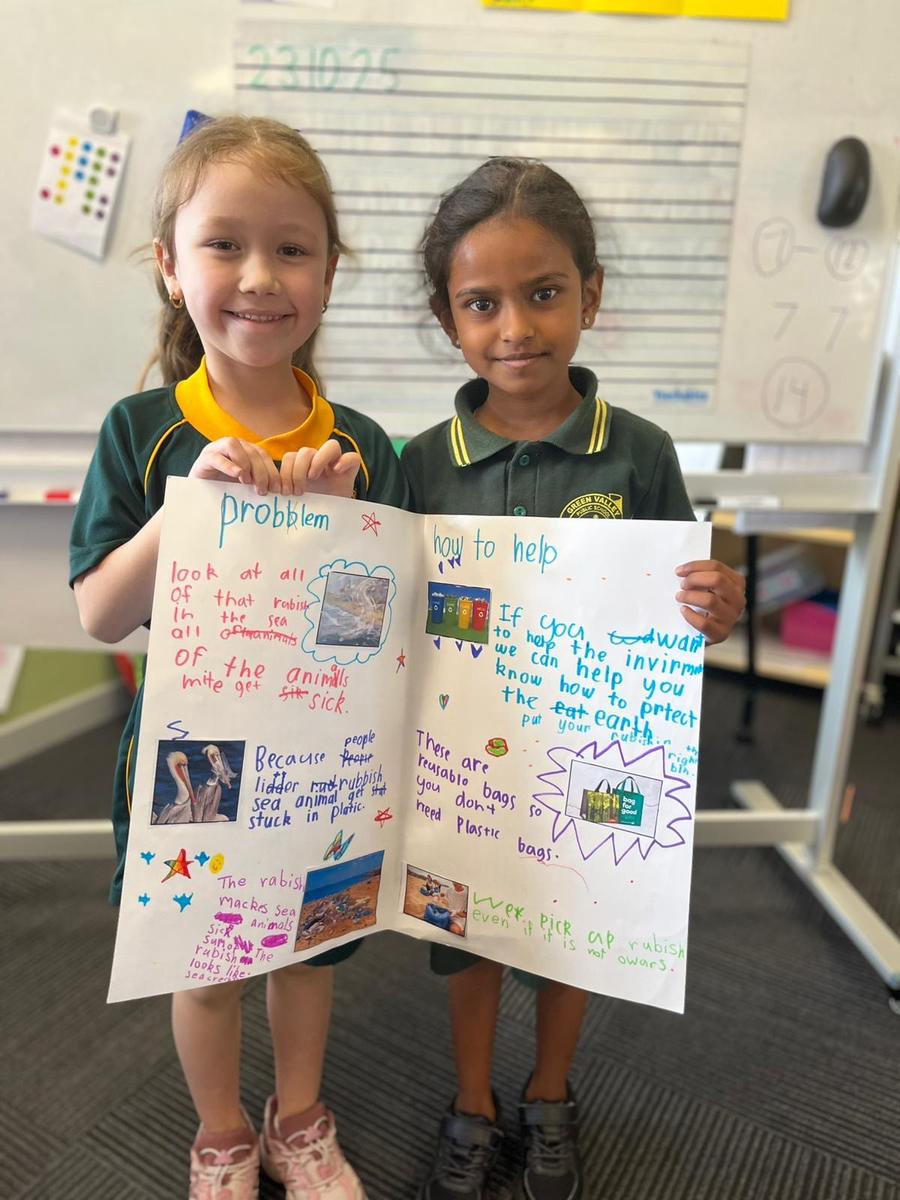 231025
7 - 12
7 7
14
GREEN VALLEY
PUBLIC SCHOOL
problem
look at all
of that rabish
In the sea
all
of the animalls
mite get sick.
Because people
lidder rubbish
sea animal get
stuck in platic.
The rabish
mackes sea
animals
sick
The
rubish
looks like
how to help
If you want
to help the invirment
we can help you
know how to prtect
the earth
put your rubish in the
right
bin.
These are
reusable bags so
you don't
need Plastic bags.
bag
for
good
We pick up rubish
even if it is not owars.